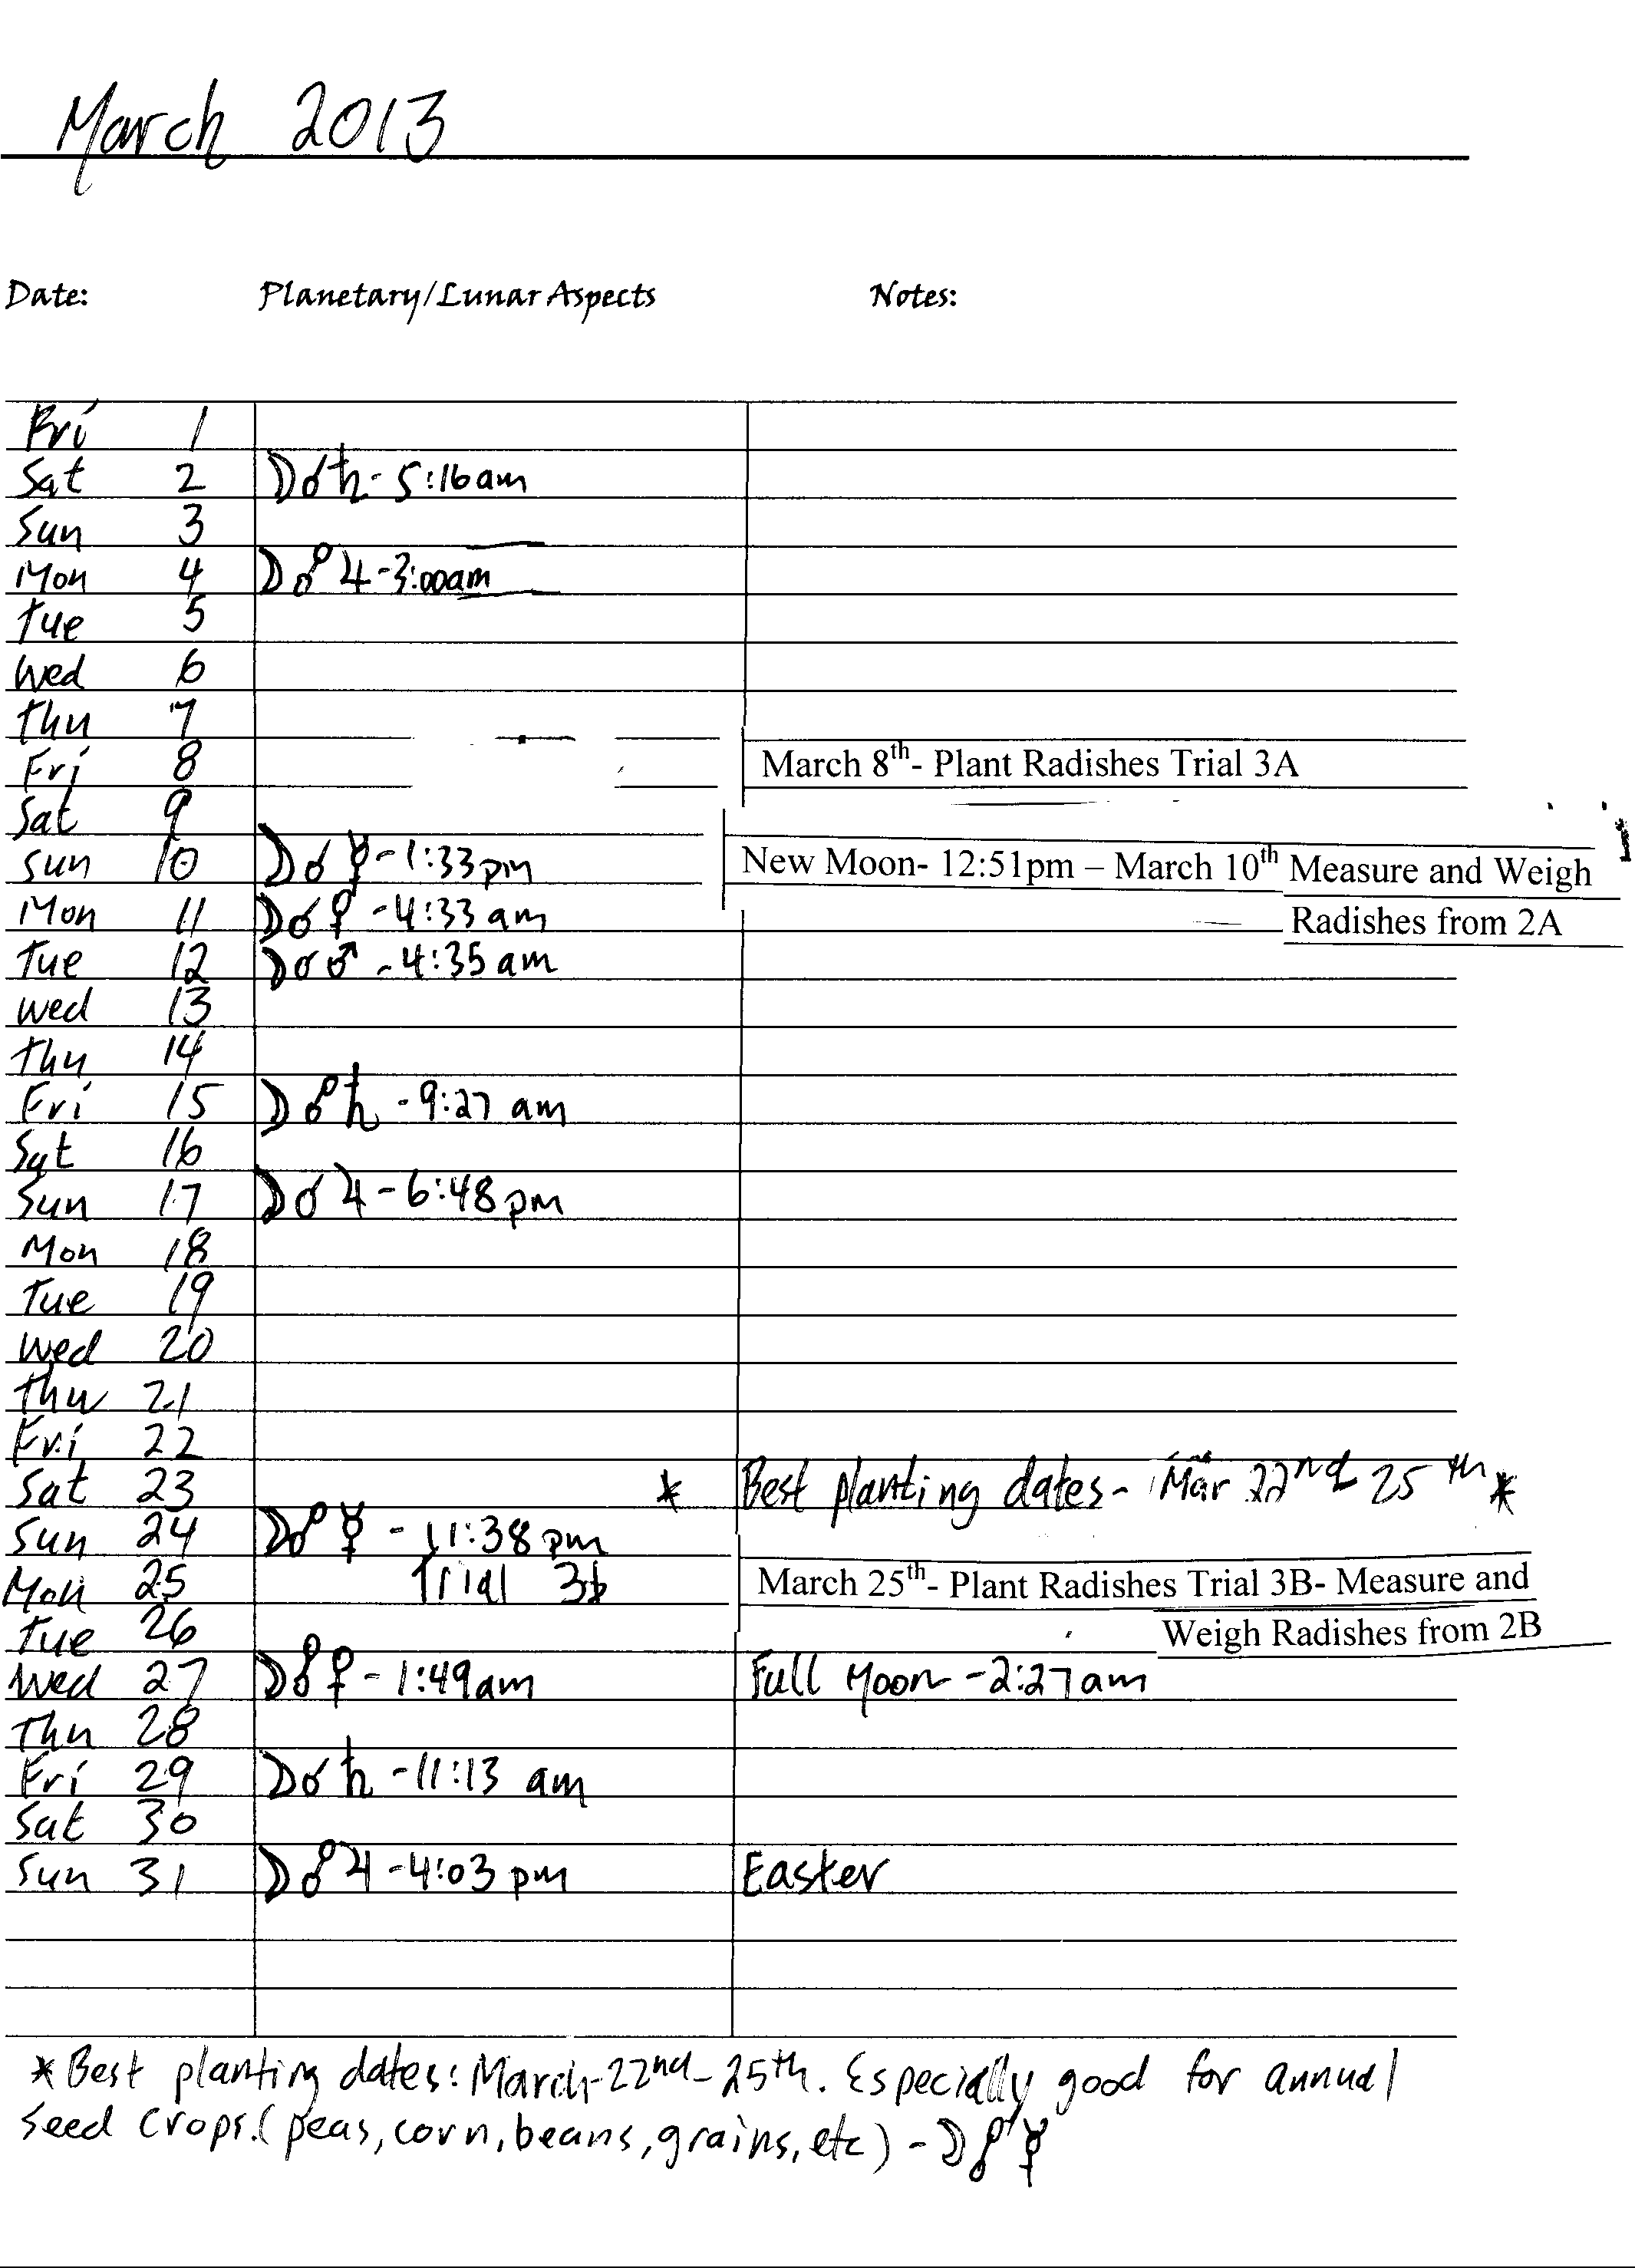 March 2013
Date: Planetary/Lunar Aspects Notes:
Fri 1
Sat 2 ☽☌♄- 5:16am
Sun 3
Mon 4 ☽☍♃-3:00am
Tue 5
Wed 6
Thu 7
Fri 8 March 8th- Plant Radishes Trial 3A
Sat 9
Sun 10 ☽☌☿-1:33pm New Moon- 12:51pm – March 10th Measure and Weigh
Mon 11 ☽☌♀-4:33 am Radishes from 2A
Tue 12 ☽☌♂-4:35 am
Wed 13
Thu 14
Fri 15 ☽☍♄-9:27 am
Sat 16
Sun 17 ☽☌♃-6:48 pm
Mon 18
Tue 19
Wed 20
Thu 21
Fri 22
Sat 23 * Best planting dates- Mar 22nd 25th *
Sun 24 ☽☍☿ - 11:38 pm
Mon 25 Trial 3b March 25th- Plant Radishes Trial 3B- Measure and
Tue 26 Weigh Radishes from 2B
Wed 27 ☽☍♀-1:49am Full Moon -2:27am
Thu 28
Fri 29 ☽☌♄-11:13 am
Sat 30
Sun 31 ☽☍♃-4:03 pm Easter
* Best planting dates: March-22nd-25th. Especially good for annual
seed crops.(peas, corn, beans, grains, etc) - ☽☍☿